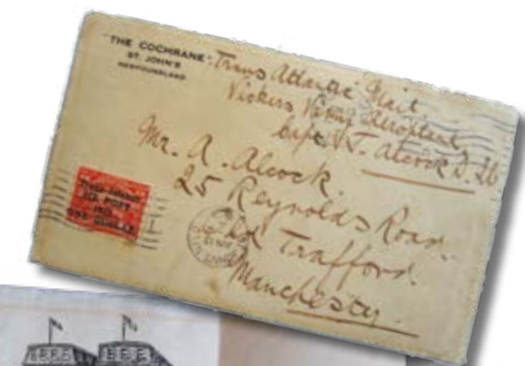 "THE COCHRANE"
ST. JOHN'S
NEWFOUNDLAND.
Trans Atlantic Mail
Vickers Vimy Aeroplane
Capt J. Alcock D.
Mr. A. Alcock.
25 Reynolds Road.
Old Trafford.
Manchester.
AIR POST
1919
ONE DOLLAR.